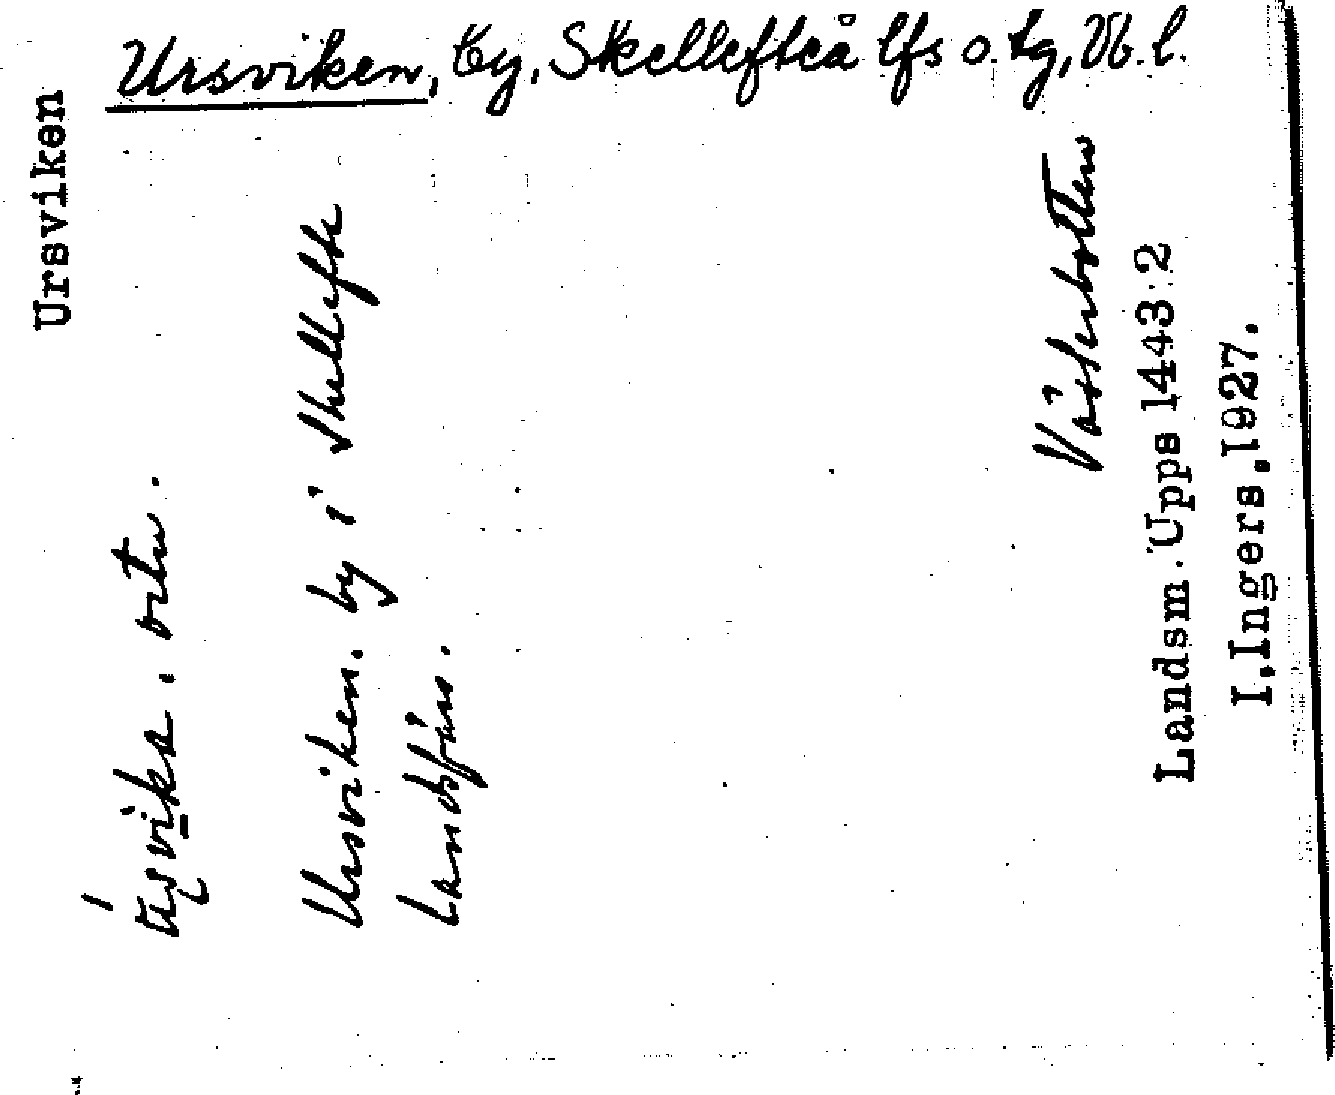 Ursviken, by, Skellefteå lfs o. tg, Vb. l.
Ursviken
ortn.
Ursviken. by i Skellefte
Landsförs.
Västerbotten
Landsm. Upps 1443:2
I. Ingers, 1927.